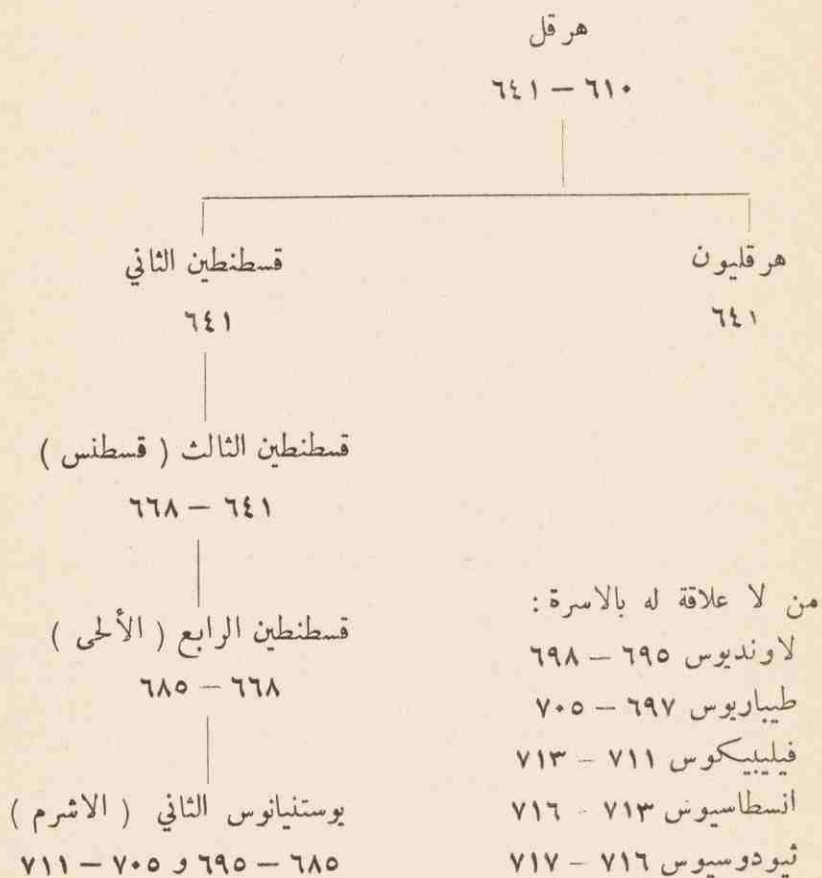 هرقل
٦١٠ – ٦٤١
هرقليون
٦٤١
قسطنطين الثاني
٦٤١
قسطنطين الثالث ( قسطنس )
٦٤١ – ٦٦٨
قسطنطين الرابع ( الألحى )
٦٦٨ – ٦٨٥
يوستنيانوس الثاني ( الاشرم )
٦٨٥ – ٦٩٥ و ٧٠٥ – ٧١١
من لا علاقة له بالاسرة :
لاونديوس ٦٩٥ – ٦٩٨
طيباريوس ٦٩٧ – ٧٠٥
فيليبيكوس ٧١١ – ٧١٣
انسطاسيوس ٧١٣ – ٧١٦
ثيودوسيوس ٧١٦ – ٧١٧